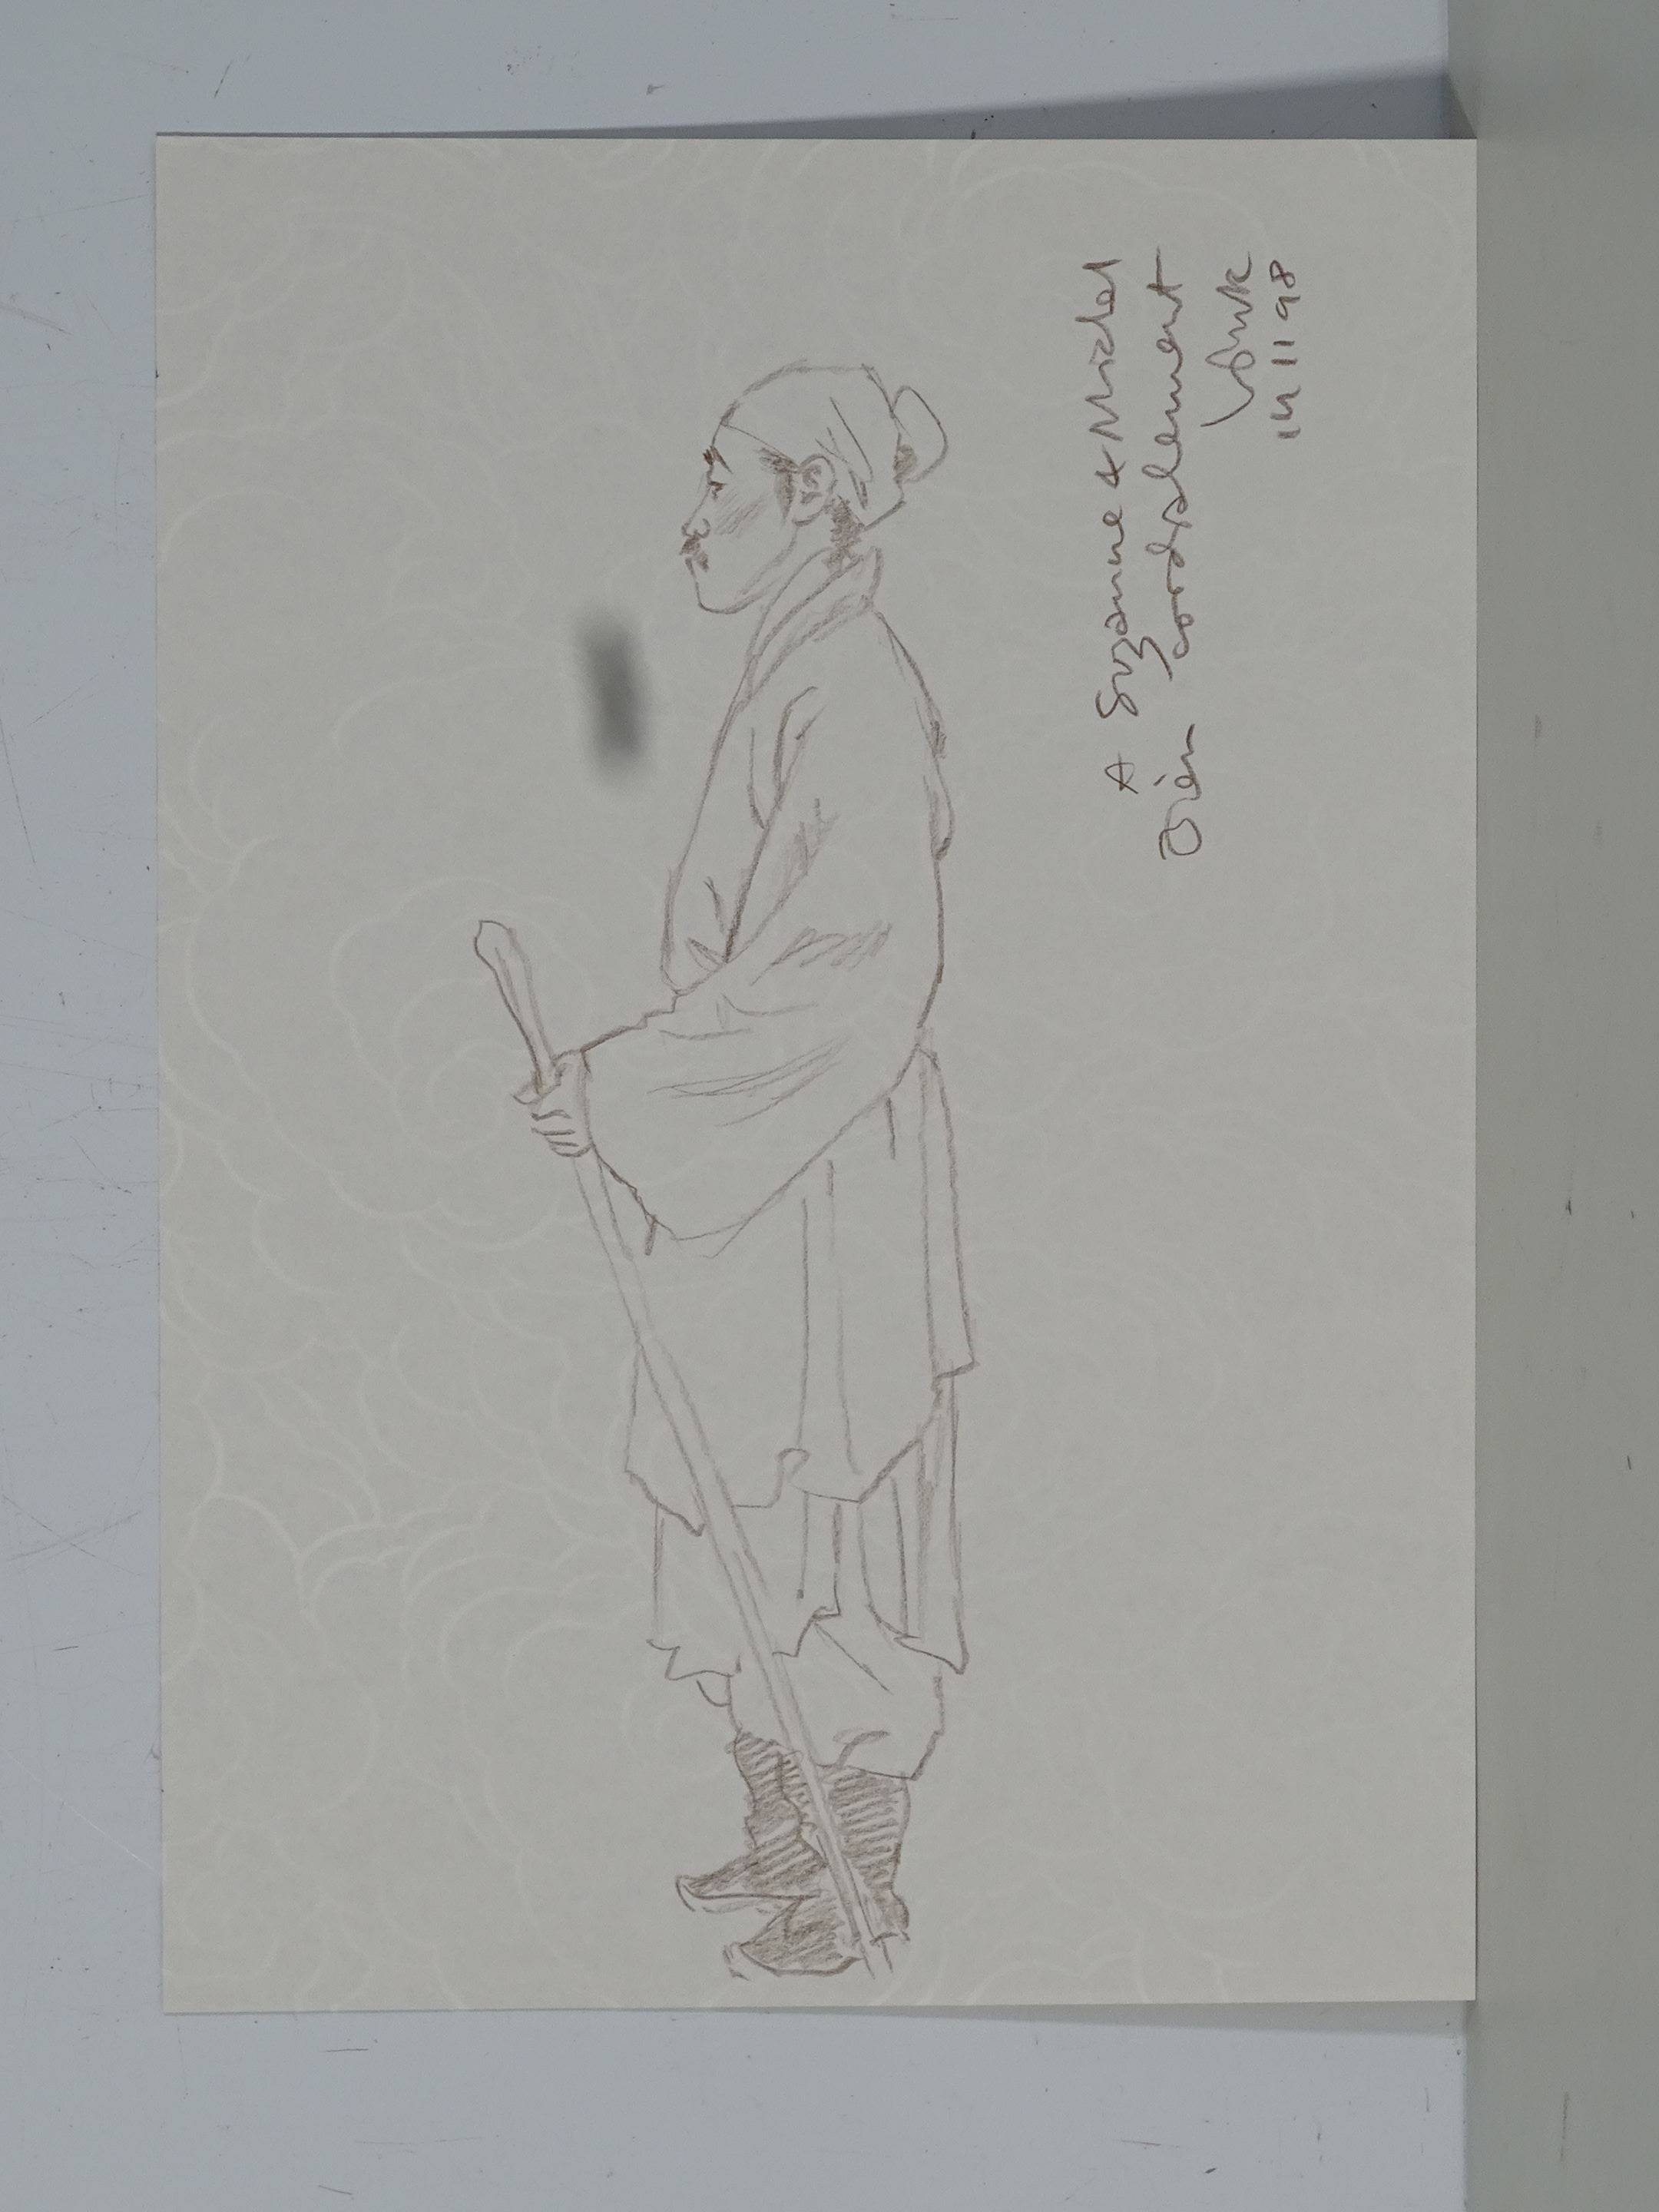 A Suzanne & Michel
Bien cordialement
Vink
14 11 98